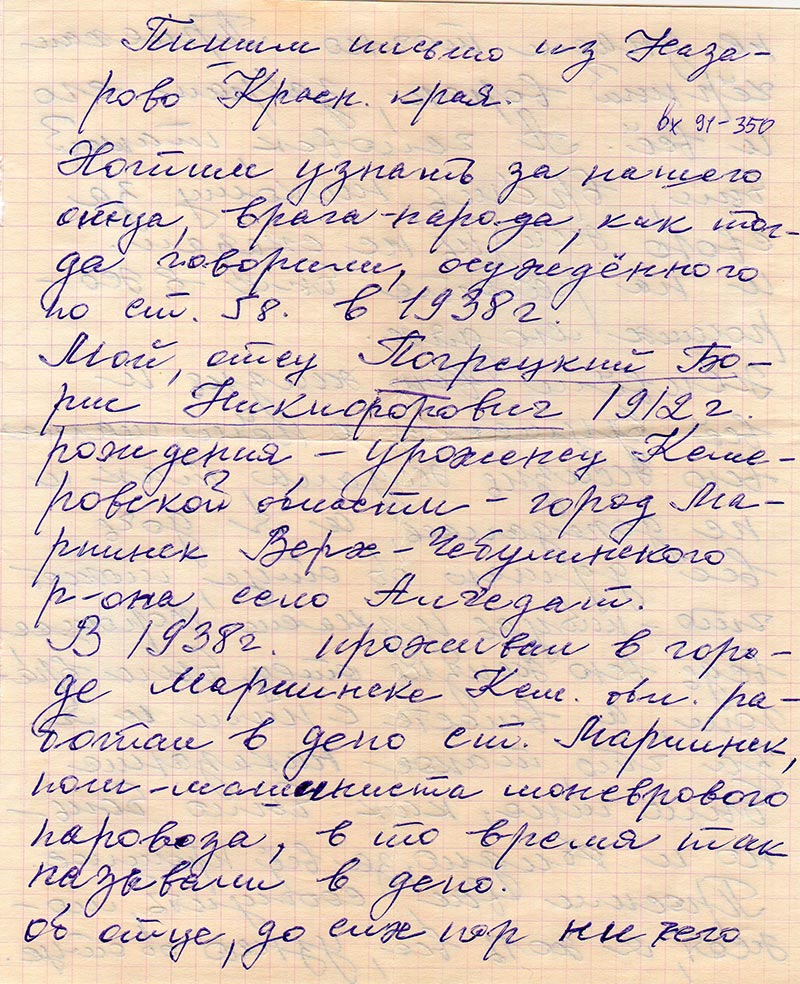 Пишим письмо из Наза-
рово Красн. края.
вх 91-350
Хотим узнать за нашего
отца, врага-народа, как тог-
да говорили, осуждённого
по ст. 58. в 1938г.
Мой, отец Погрецкий Бо-
рис Никифорович 1912г.
рождения – уроженец Кеме-
ровской области – город Ма-
риинск Верх-Чебулинского
р-она, село Алчедат.
В 1938г. проживал в горо-
де Мариинске Кем. обл. ра-
ботал в депо ст. Мариинск,
пом-машиниста моневрового
паровоза, в то время так
называли в депо.
об отце, до сих пор ни чего